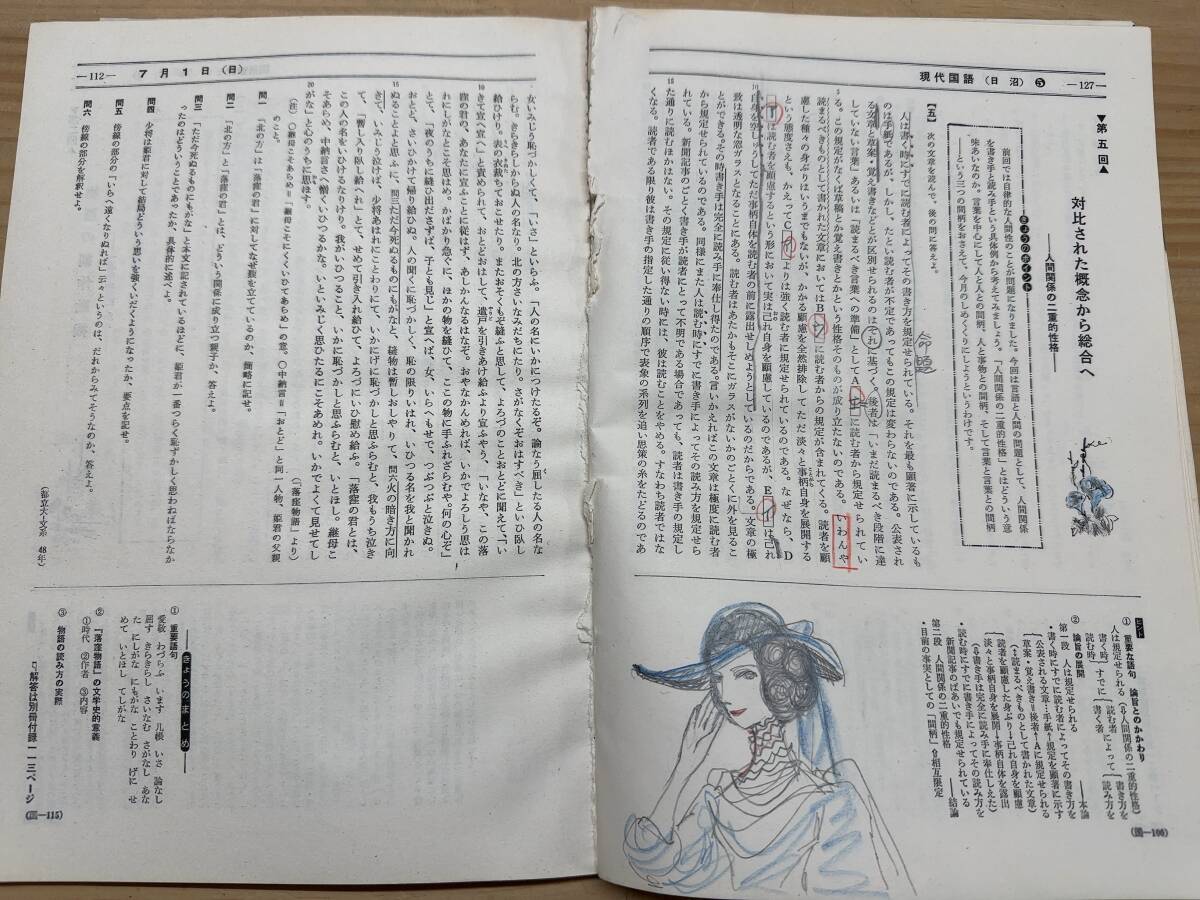 現代国語 (日沼) ❺ —127—
▼第五回▲
対比された概念から総合へ
——人間関係の二重的性格——
きょうのポイント
前回では自律的な人間性のことが問題になりました。今回は言語と人間の問題として、人間関係
を書き手と読み手という具体例から考えてみましょう。「人間関係の二重的性格」とはどういう意
味あいなのか。言葉を中心にして人と人との間柄、人と事物との間柄、そして言葉と言葉との間柄
——という三つの間柄をおさえて、今月のしめくくりにしようというわけです。
【五】 次の文章を読んで、後の問に答えよ。
人は書く時にすでに読む者によってその書き方を規定せられている。それを最も顕著に示しているも
のは手紙であるが、しかし、たとい読む者が不定であってもこの規定は変わらないのである。公表され
る文章と草案・覚え書きなどとが区別せられるのはそれに基づく。後者は「いまだ読まるべき段階に達
していない言葉」あるいは「読まるべき言葉への準備」としてA エに読む者から規定せられてい
る。この規定がなくば草稿とか覚え書きとかという性格そのものが成り立たないのである。いわんや
読まるべきものとして書かれた文章においてはB ウに読む者からの規定が含まれてくる。読者を顧
慮した種々の身ぶりはいうまでもないが、かかる顧慮を全然排除してただ淡々と事柄自身を展開する
という態度さえも、かえってC よりは強く読む者に規定せられているのである。なぜなら、D
は読む者を顧慮するという形において実は己れ自身を顧慮しているのであるが、E イは己れ
自身を空しゅうしてただ事柄自体を読む者の前に露出せしめようとしているのだからである。文章の極
致は透明な窓ガラスとなることにある。読む者はあたかもそこにガラスがないかのごとくに外を見るこ
とができる。その時書き手は完全に読み手に奉仕し得たのである。言いかえればこの文章は極度に読む者
から規定せられているのである。同様にまた人は読む時にすでに書き手によってその読み方を規定せら
れている。新聞記事のごとく書き手が読者にとって不明である場合であっても、読者は書き手の規定し
た通りに読むほかはない。その規定に従い得ない時には、彼は読むことをやめる。すなわち読者ではな
くなる。読者である限り彼は書き手の指定した通りの順序で表象の系列を追い思策の糸をたどるのであ
ヒント
① 重要な語句 論旨とのかかわり
人は規定せられる(⇩人間関係の二重的性格)
書く時 すでに 読む者 によって 書き方を
読む時 書く者 読み方を
② 論旨の展開
第一段 人は規定せられる ——本論
・書く時にすでに読む者によってその書き方を
公表される文章…手紙↑規定を顕著に示す
草案・覚え書き＝後者↑Aに規定せられる
(↕読まるべきものとして書かれた文章)
読者を顧慮した身ぶり→己れ自身を顧慮
淡々と事柄自身を展開→事柄自体を露出
(⇩書き手は完全に読み手に奉仕しえた)
・読む時にすでに書き手によってその読み方を
新聞記事のばあいでも規定せられている
第二段 人間関係の二重的性格 ——結論
・目前の事実としての「間柄」⇧相互限定
—112— 7月1日(日)
女いみじう恥づかしくて、「いさ」といらふ。「人の名にいかにつけたるぞ。論なう屈したる人の名な
らむ。きらきらしからぬ人の名なり。北の方さいなみだちにたり。さがなくぞおはすべき」といひ臥し
給ひけり。表の衣裁ちておこせたり。またおそくもぞ縫ふと思して、よろづのことおとどに聞えて、「い
きて宣へ宣へ」と責められて、おとどおはして、遣戸を引きあけ給ふより宣ふやう、「いなや、この落
窪の君の、あなたに宣ふことに従はず、あしかんなるはなぞ。おやなかんめれば、いかでよろしう思は
れにしがなとこそ思はめ。かばかり急ぐに、ほかの物を縫ひて、この物に手ふれざらむや。何の心ぞ」
とて、「夜のうちに縫ひ出ださずば、子とも見じ」と宣へば、女、いらへもせで、つぶつぶと泣きぬ。
おとど、さいひかけて帰り給ひぬ。人の聞くに恥づかしく、恥の限りいはれ、いひつる名を我と聞かれ
ぬることよと思ふに、問三ただ今死ぬるものにもがなと、縫物は暫しおしやりて、問六火の暗き方に向
きて、いみじう泣けば、少将あはれにことわりにて、いかにげに恥づかしと思ふらむと、我もうち泣き
て、「暫し入り臥し給へれ」とて、せめて引き入れ給ひて、よろづにいひ慰め給ふ。「落窪の君とは、
この人の名をいひけるなりけり。我がいひつること、いかに恥づかしと思ふらむと、いとほし。継母こ
そあらめ、中納言さへ憎くいひつるかな。いといみじく思ひたるにこそあめれ。いかでよくて見せてし
がな」と心のうちに思ほす。
(「落窪物語」より)
(注) ○継母こそあらめ＝「継母こそにくくいひてあらめ」の意。○中納言＝「おとど」と同一人物、姫君の父親
のこと。
問一 「北の方」は「落窪の君」に対してなぜ腹を立てているのか、簡略に記せ。
問二 「北の方」と「落窪の君」とは、どういう関係に成り立つ親子か、答えよ。
問三 「ただ今死ぬるものにもがな」と本文に記されているほどに、姫君が一番つらく恥ずかしく思わねばならなか
ったのはどういうことであったか、具体的に述べよ。
問四 少将は姫君に対して結局どういう思いを強くいだくようになったか、要点を記せ。
問五 傍線の部分の「いらへ遠くなりぬれば」云々というのは、だれからみてそうなのか、答えよ。
問六 傍線の部分を解釈せよ。
(都立大―文系 48年)
きょうのまとめ
① 重要語句
愛敬 わづらふ います 几帳 いさ 論なし
屈す きらきらし さいなむ さがなし あな
た にしがな にもがな ことわり げに せ
めて いとほし てしがな
② 『落窪物語』の文学史的意義
①時代 ②作者 ③内容
③ 物語の読み方の実際
☞解答は別冊付録一一三ページ